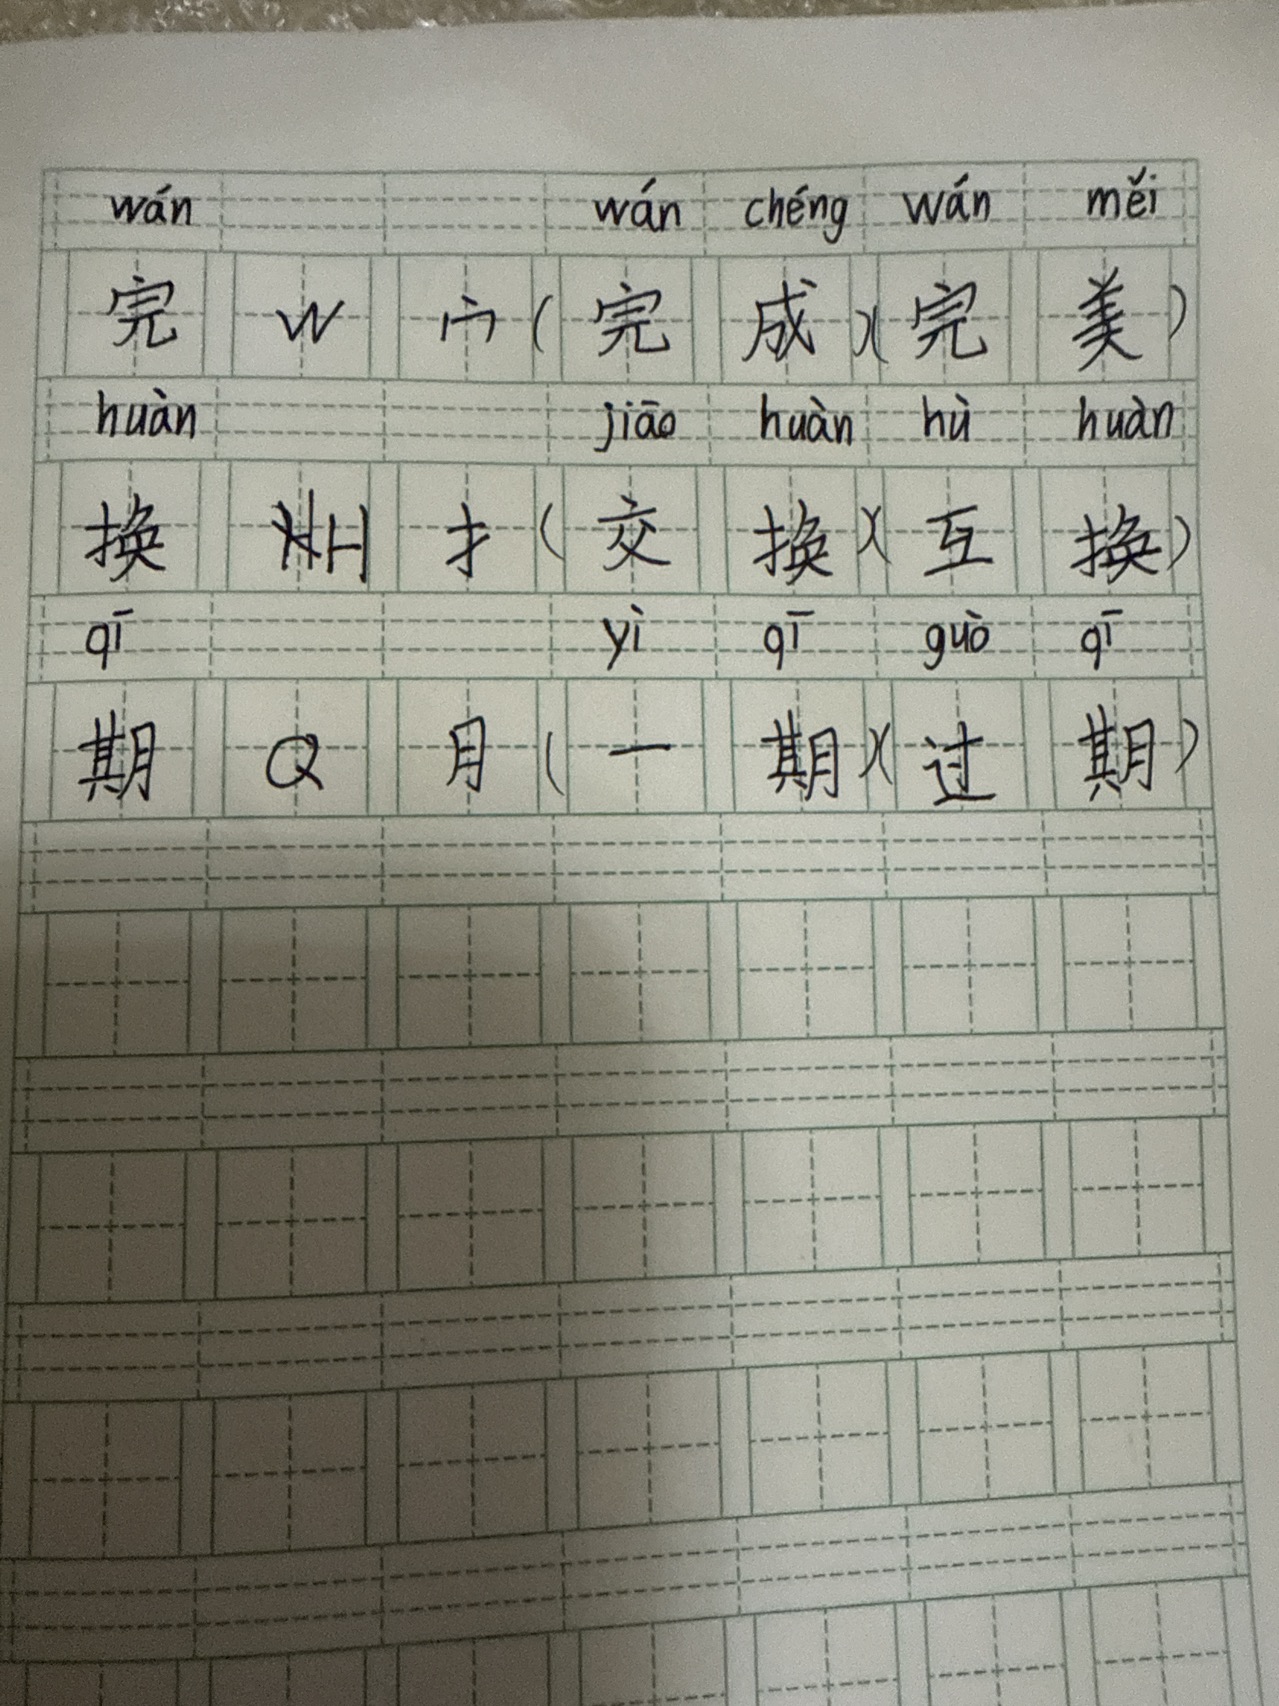 wán wán chéng wán měi
完 W 宀 (完成)(完美)
huàn jiāo huàn hù huàn
换 H 扌 (交换)(互换)
qī yì qī guò qī
期 Q 月 (一期)(过期)